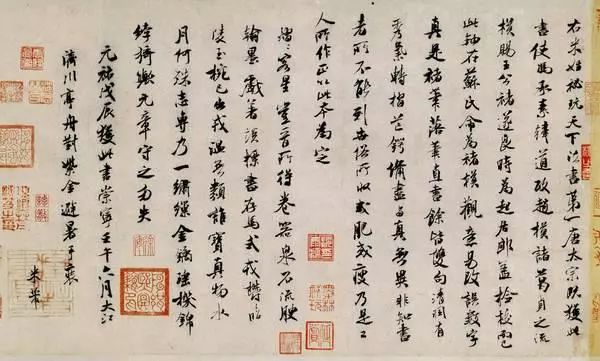 右米姓秘玩天下法書第一唐太宗既獲此
書使馮承素韓道政趙模諸葛貞之流
模賜王公褚遂良時為起居郎蓋檢校而已
此軸在蘇氏命為褚模觀意易改誤數字
真是褚筆落筆直書餘皆雙鉤清潤有
秀氣轉摺芒鋩備盡與真無異非知書
者所不能到世俗所收或肥或瘦乃是工
人所作正以此本為定
熠〻客星豈晉所得養器泉石流腴
翰墨戲著談標書存焉式鬱〻昭
陵玉椀已出戎溫無類誰寶真物水
月何殊志專乃一繡繅金鐍瓊機錦
綍猗歟元章守之勿失
元祐戊辰獲此書崇寧壬午六月大江
濟川亭舟對紫金避暑手裝
米芾